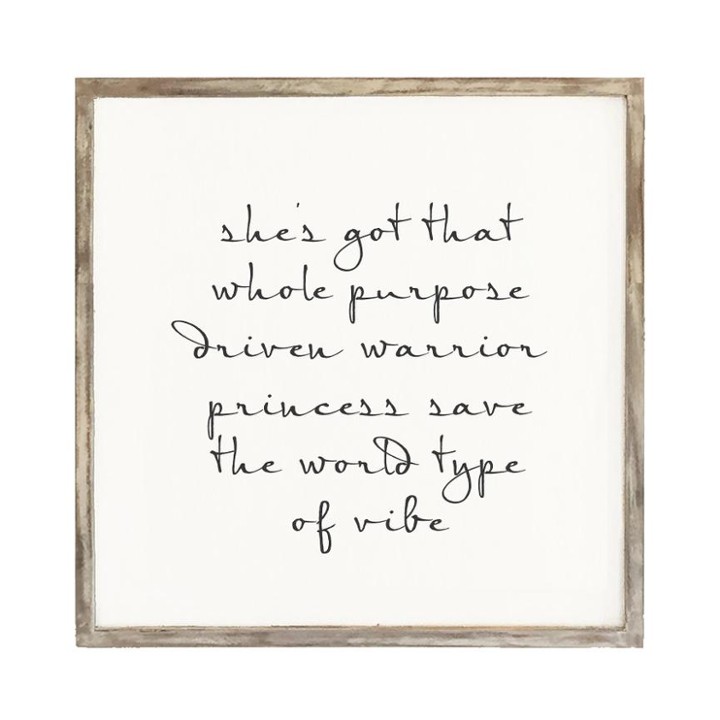 she's got that
whole purpose
driven warrior
princess save
the world type
of vibe